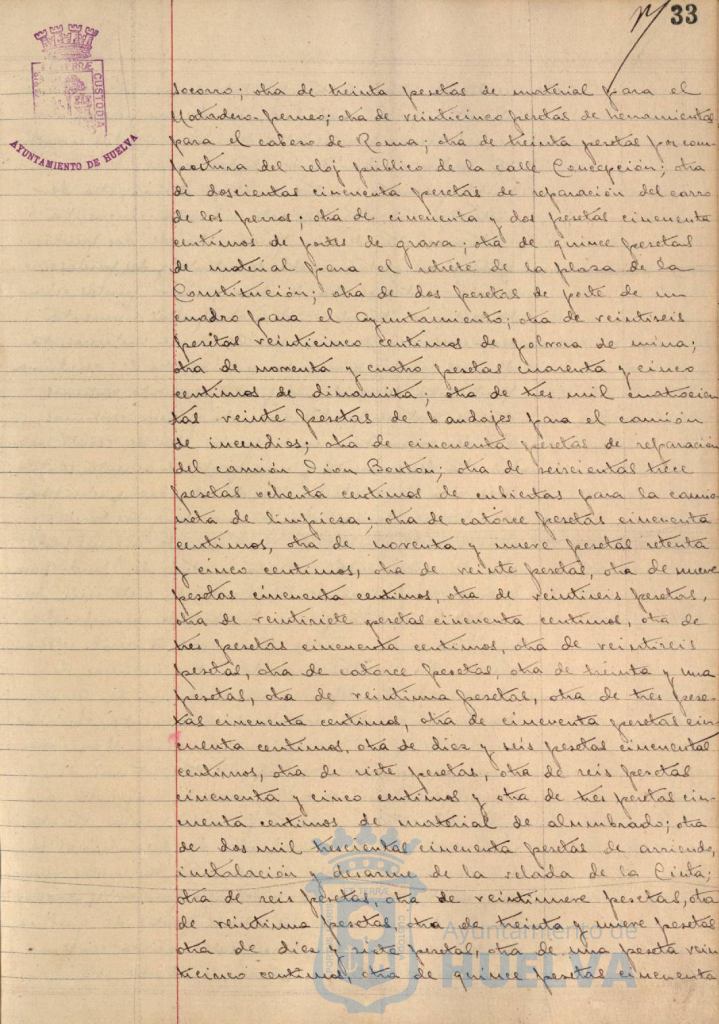 33
CUSTODIA
AYUNTAMIENTO DE HUELVA
socorro; otra de treinta pesetas de material para el
Matadero-perneo; otra de veinticinco pesetas de herramientas
para el cabezo de Roma; otra de treinta pesetas por com-
postura del reloj público de la calle Concepción; otra
de doscientas cincuenta pesetas de reparación del carro
de los perros; otra de cincuenta y dos pesetas cincuenta
centimos de portes de grava; otra de quince pesetas
de material para el retrete de la plaza de la
Constitución; otra de dos pesetas de porte de un
cuadro para el Ayuntamiento; otra de veintiseis
pesetas veinticinco centimos de polvora de mina;
otra de noventa y cuatro pesetas cuarenta y cinco
centimos de dinamita; otra de tres mil cuatrocien
tas veinte pesetas de bandajes para el camión
de incendios; otra de cincuenta pesetas de reparación
del camión Dion Bouton; otra de seiscientas trece
pesetas ochenta centimos de cubiertas para la camio-
neta de limpieza; otra de catorce pesetas cincuenta
centimos, otra de noventa y nueve pesetas setenta
y cinco centimos, otra de veinte pesetas, otra de nueve
pesetas cincuenta centimos, otra de veintiseis pesetas,
otra de veintisiete pesetas cincuenta centimos, otra de
tres pesetas cincuenta centimos, otra de veintiseis
pesetas, otra de catorce pesetas, otra de treinta y una
pesetas, otra de veintiuna pesetas, otra de tres pese-
tas cincuenta centimos, otra de cincuenta pesetas cin-
cuenta centimos, otra de diez y seis pesetas cincuenta
centimos, otra de siete pesetas, otra de seis pesetas
cincuenta y cinco centimos y otra de tres pesetas cin-
cuenta centimos de material de alumbrado; otra
de dos mil trescientas cincuenta pesetas de arriendo,
instalación y desarme de la velada de la Cinta;
otra de seis pesetas, otra de veintinueve pesetas, otra
de veintiuna pesetas, otra de treinta y nueve pesetas
otra de diez y siete pesetas, otra de una peseta vein
ticinco centimos, otra de quince pesetas cincuenta
Ayuntamiento de
HUELVA